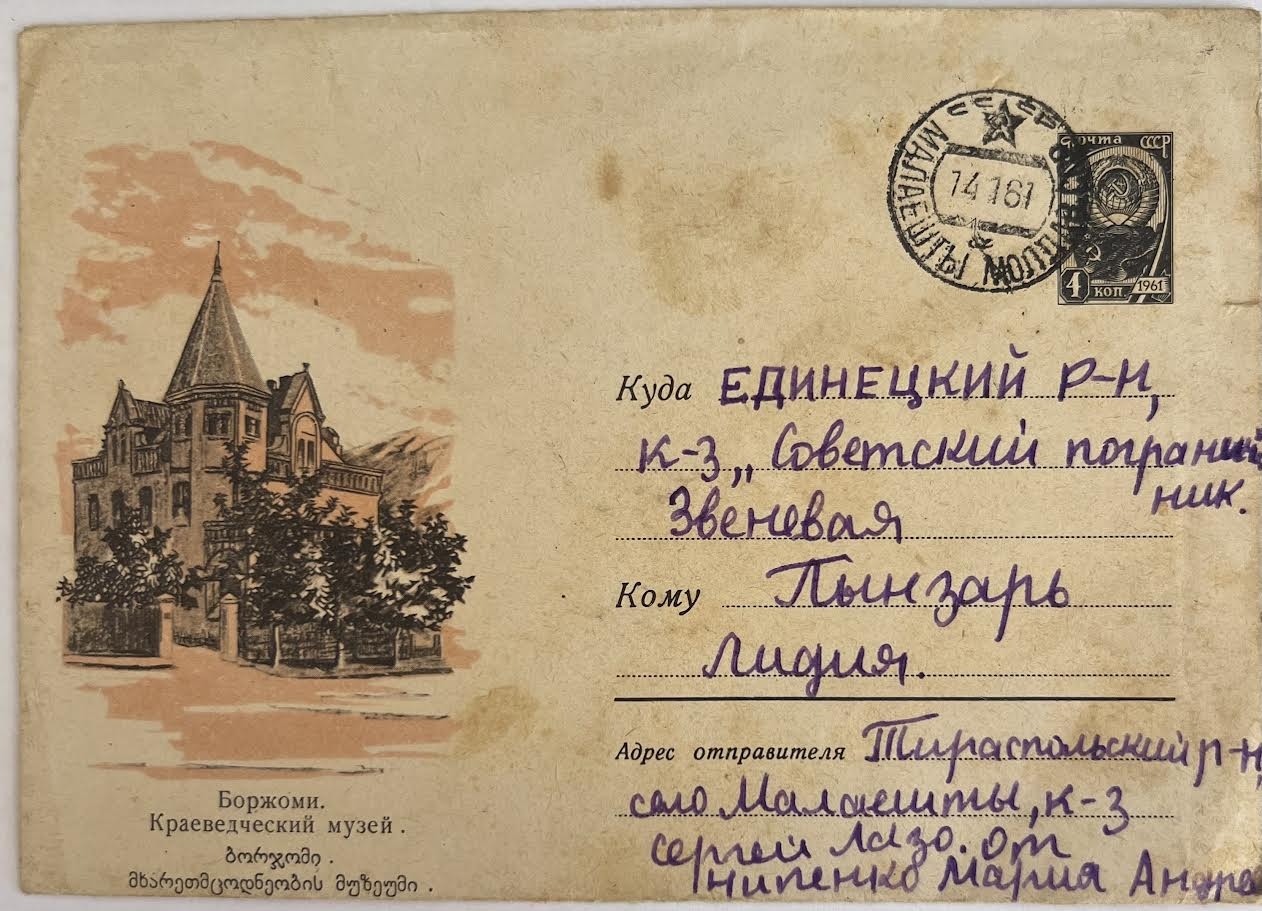 Почта СССР
14 1 61
4 коп. 1961
Куда ЕДИНЕЦКИЙ Р-Н,
к-з „ Советский погранич
ник.
Звеневая
Кому Пынзарь
Лидия.
Адрес отправителя Тираспольский р-н,
село Малаешты, к-з
Сергей Лазо. от
Нипенко Мария Андре
Боржоми.
Краеведческий музей.
ბორჯომი.
მხარეთმცოდნეობის მუზეუმი.